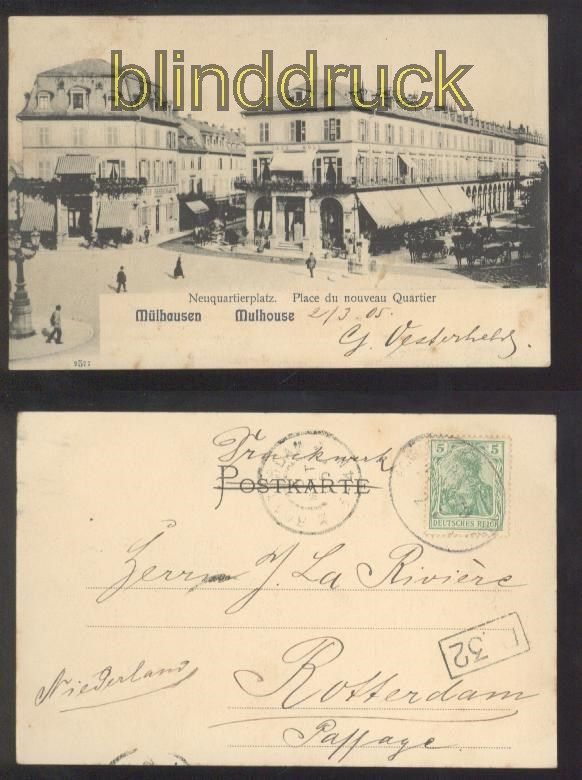 blinddruck
Neuquartierplatz. Place du nouveau Quartier
Mülhausen Mulhouse 2/3 05.
G. Oesterheld.
9577
Drucksache
POSTKARTE
5 5
DEUTSCHES REICH
Herrn J. La Rivière
32
Niederland
Rotterdam
Passage.